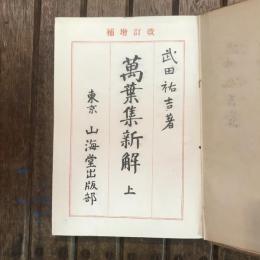 補增訂改
武田祐吉著
萬葉集新解 上
東京 山海堂出版部